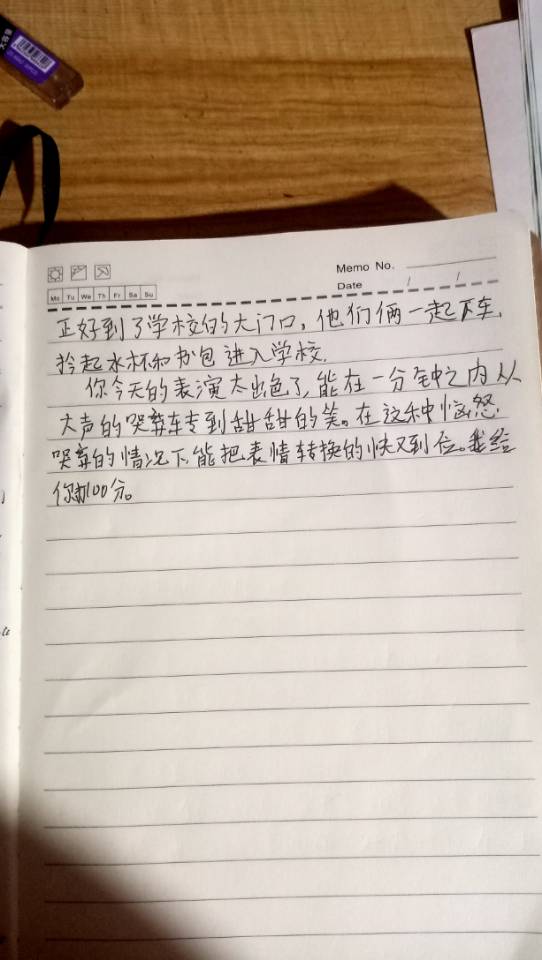 大容量
Memo No.
Mo Tu We Th Fr Sa Su
Date / /
正好到了学校的大门口，他们俩一起下车，
拎起水杯和书包进入学校.
你今天的表演太出色了,能在一分钟之内从
大声的哭转到甜甜的笑。在这种恼怒.
哭的情况下,能把表情转换的快又到位。我给
你100分。